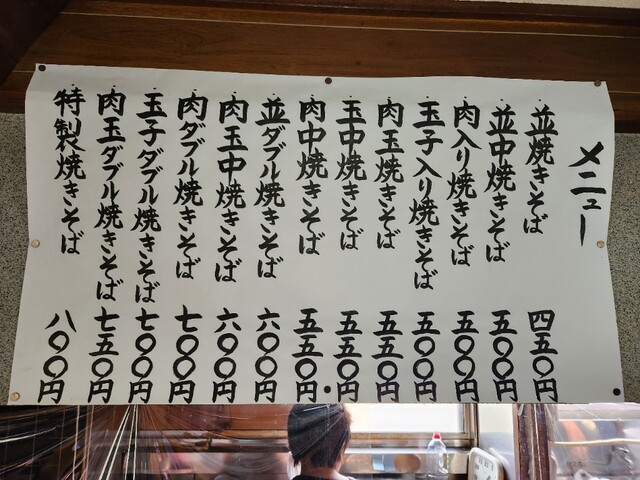 メニュー
並焼きそば 四五〇円
並中焼きそば 五〇〇円
肉入り焼きそば 五〇〇円
玉子入り焼きそば 五〇〇円
肉玉焼きそば 五五〇円
玉中焼きそば 五五〇円
肉中焼きそば 五五〇円
並ダブル焼きそば 六〇〇円
肉玉中焼きそば 六〇〇円
肉ダブル焼きそば 七〇〇円
玉子ダブル焼きそば 七〇〇円
肉玉ダブル焼きそば 七五〇円
特製焼きそば 八〇〇円